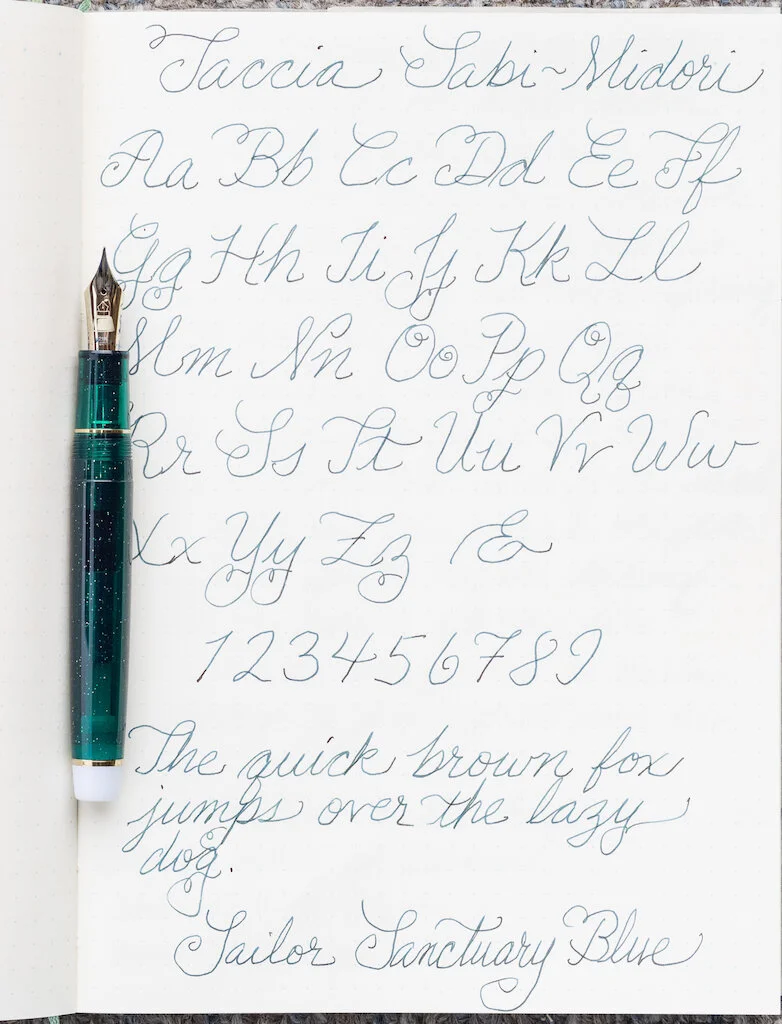 Taccia Sabi~Midori
Aa Bb Cc Dd Ee Ff
Gg Hh Ii Jj Kk Ll
Mm Nn Oo Pp Qq
Rr Ss Tt Uu Vv Ww
Xx Yy Zz &
123456789
The quick brown fox
jumps over the lazy
dog.
Sailor Sanctuary Blue